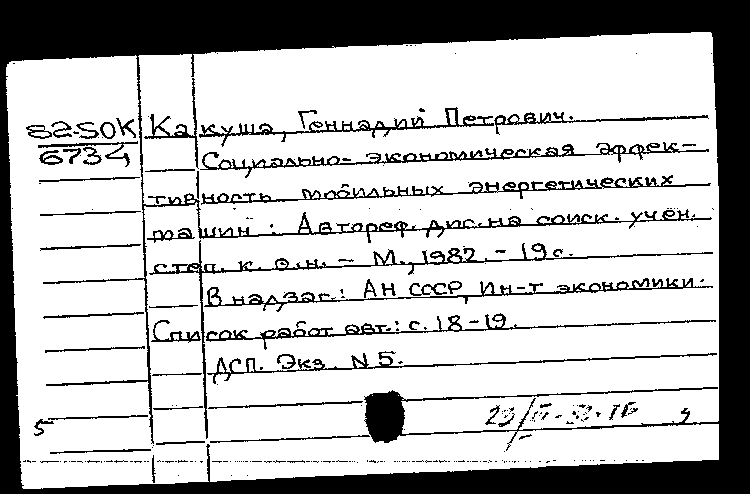 82-50К Какуша, Геннадий Петрович.
6734 Социально-экономическая эффек-
тивность мобильных энергетических
машин : Автореф. дис. на соиск. учен.
степ. к. э. н. - М., 1982. - 19 с.
В надзаг.: АН СССР, Ин-т экономики.
Список работ авт.: с. 18-19.
ДСП. Экз. N 5.
5